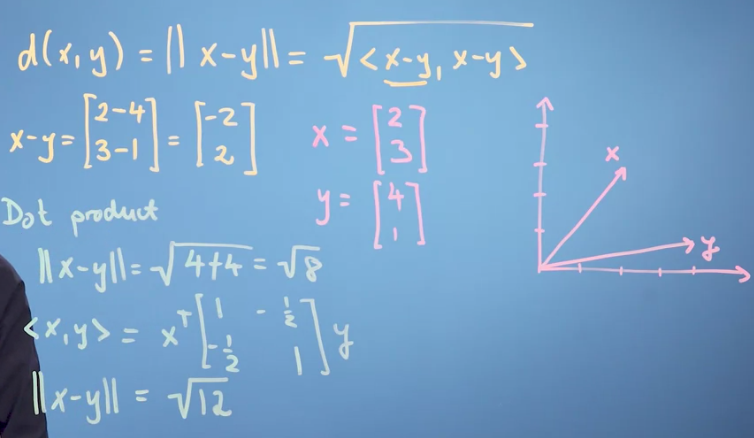 d(x,y) = ||x-y|| = √<x-y, x-y>
x-y = [2-4 3-1] = [-2 2]
x = [2 3]
y = [4 1]
x
y
Dot product
||x-y|| = √4+4 = √8
<x,y> = xᵀ [1 -½ -½ 1] y
||x-y|| = √12